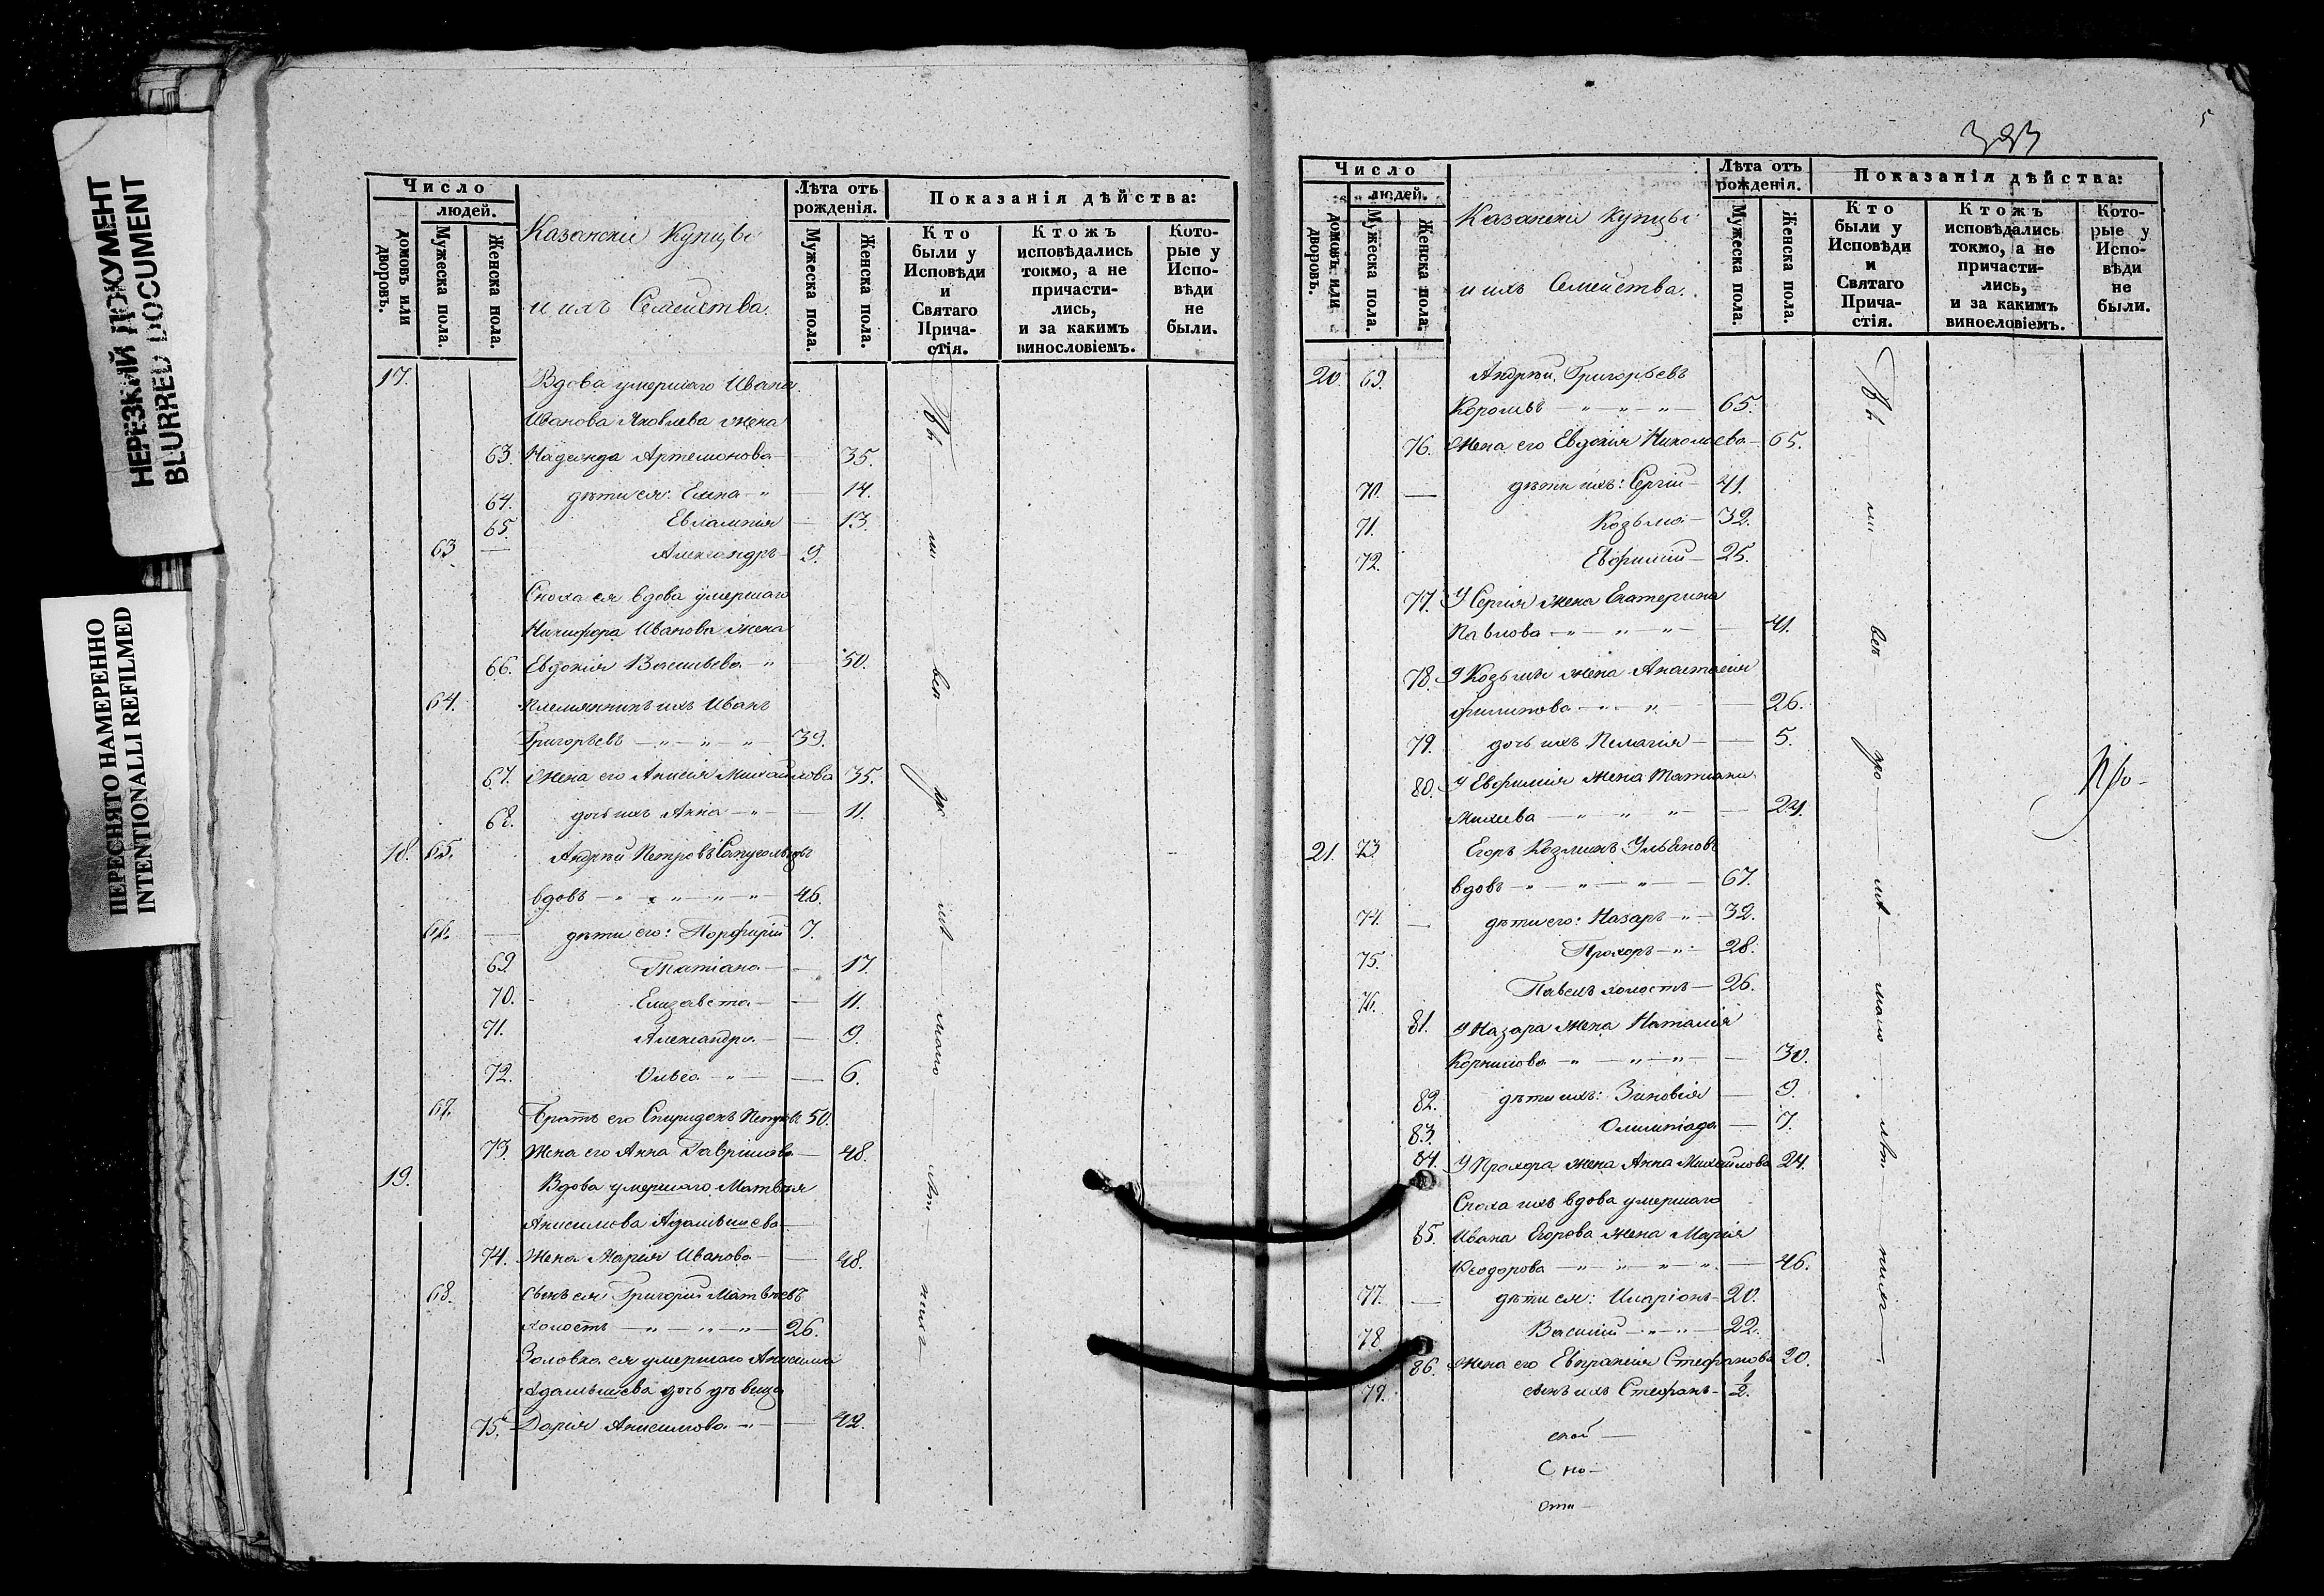 НЕРЕЗКИЙ ДОКУМЕНТ
BLURRED DOCUMENT
ПЕРЕСНЯТО НАМЕРЕННО
INTENTIONALLI REFILMED
Число
людей.
домовъ или дворовъ.
Мужеска пола.
Женска пола.
Казанскіи Купцы
и ихъ Семейства.
Лѣта отъ рожденія.
Мужеска пола.
Женска пола.
Показанія дѣйства:
Кто были у Исповѣди и Святаго Прича-стія.
Ктожъ исповѣдались токмо, а не причасти-лись, и за какимъ винословіемъ.
Кото-рые у Испо-вѣди не были.
17. Вдова умершаго Ивана
Иванова Яковлева жена
63. Надежда Артемонова 35.
64. дѣти ея: Елена 14.
65. Евлампія 13.
63 Александръ 9.
Сноха ея вдова умершаго
Никифора Иванова жена
66. Евдокія Васильева 50.
64. Племянникъ ихъ Иванъ
Григорьевъ 39.
67. Жена его Анисія Михайлова 35.
68. дочь ихъ Анна 11.
18. 65. Андрей Петровъ
вдовъ 46.
66. дѣти его: Порфирій 7.
69. Татіана 17.
70. Елизавета 11.
71. Александра 9.
72. Ольга 6.
67. Братъ его Спиридонъ Петровъ 50.
73. Жена его Анна Гаврилова 48.
19. Вдова умершаго Матвѣя
Анисимова Адамышева
74. Жена Марія Иванова 48.
68. Сынъ ея Григорій Матвѣевъ
холостъ 26.
Золовка ея умершаго Анисима
Адамышева дочь дѣвица
75. Дарія Анисимова 42.
323
5
Число
людей.
домовъ или дворовъ.
Мужеска пола.
Женска пола.
Казанскіи купцы
и ихъ Семейства.
Лѣта отъ рожденія.
Мужеска пола.
Женска пола.
Показанія дѣйства:
Кто были у Исповѣди и Святаго Прича-стія.
Ктожъ исповѣдались токмо, а не причасти-лись, и за какимъ винословіемъ.
Кото-рые у Испо-вѣди не были.
20. 69. Андрей Григорьевъ
65.
76. Жена его Евдокія Николаева 65.
70. дѣти ихъ: Сергій 41.
71. Козьма 32.
72. Евфимій 25.
77. У Сергія жена Екатерина
Павлова 41.
78. У Козьмы жена Анастасія
Филипова 26.
79. дочь ихъ Пелагія 5.
80. У Евфимія жена Татіана
Михеева 24.
21. 73 Егоръ Козминъ Ульяновъ
вдовъ 67.
74. дѣти его: Назаръ 32.
75. Прохоръ 28.
76. Павелъ холостъ 26.
81. У Назара жена Наталія
Корнилова 30.
82. дѣти ихъ: Зиновія 9.
83. Олимпіада 7.
84. У Прохора жена Анна Михайлова 24.
Сноха ихъ вдова умершаго
85. Ивана Егорова жена Марія
Ѳеодорова 46.
77. дѣти ея: Иларіонъ 20.
78 Василій 22.
86. Жена его Евпраксія Стефанова 20.
79. сынъ ихъ Стефанъ 1/2.